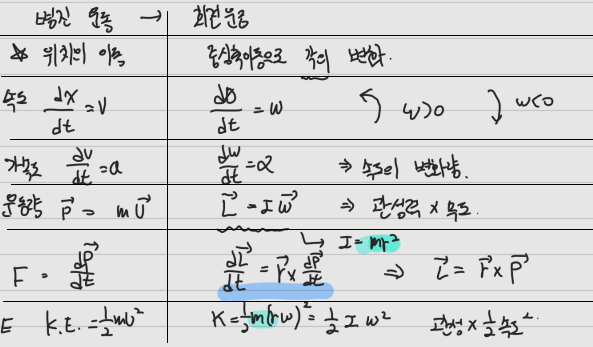 병진 운동 → 회전운동
☆ 위치의 이동 중심축이동으로 각의 변화.
속도 dx/dt = V dθ/dt = w w>0 w<0
가속도 dv/dt = a dw/dt = α ⇒ 속도의 변화량.
운동량 p⃗ = mv⃗ L⃗ = I w⃗ ⇒ 관성력 × 속도.
I = mr²
F = dp⃗/dt dL⃗/dt = r⃗ × dp⃗/dt ⇒ L⃗ = r⃗ × p⃗
E K.E. = ½mv² K = ½m(rw)² = ½ I w² 관성 × ½ 속도².